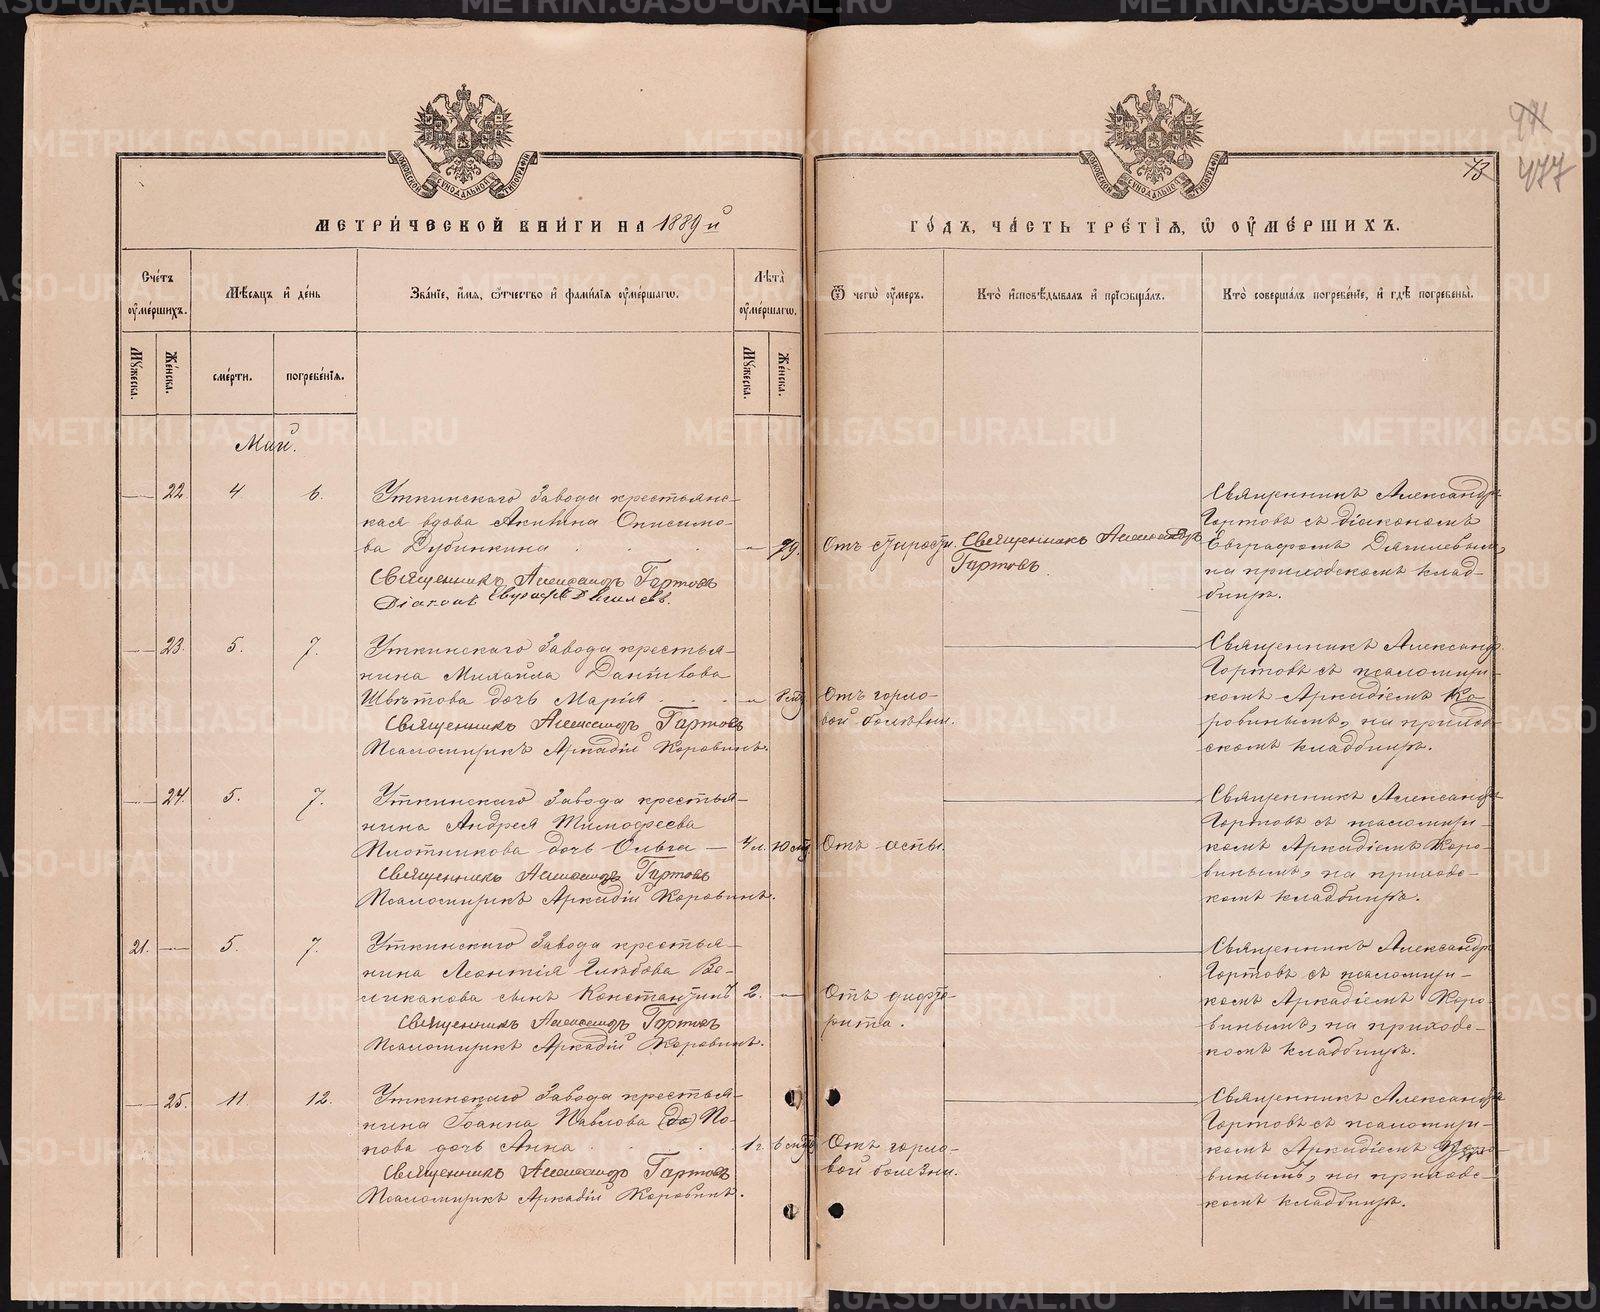 МЕТРИ́ЧЕСКОЙ КНИ́ГИ НА 1889й ГО́ДЪ, ЧА́СТЬ ТРЕ́ТІѦ, Ѡ ОУМЕ́РШИХЪ.
73
477
Сче́тъ оуме́ршихъ.
Мѣ́сяцъ и де́нь
Зва́нїе, и́мѧ, ѻ҆́тчество и фами́лїѧ оуме́ршагѡ.
Лѣ́та оуме́ршагѡ.
Ѿ чегѡ̀ оу́меръ.
Кто̀ и҆сповѣ́дывалъ и прїѡбща́лъ.
Кто̀ соверша́лъ погребе́нїе, и гдѣ̀ погребены̀.
Му́жеска.
Же́нска.
сме́рти.
погребе́нїѧ.
Му́жеска.
Же́нска.
Май.
22 4 6.
Уткинскаго Завода крестьянс-
кая вдова Акилина Онисимо-
ва Дубинкина
79.
Священникъ Александръ Гортовъ
Діаконъ Евграфъ Дягилевъ.
Отъ старости.
Священникъ Александръ
Гортовъ.
Священникъ Александръ
Гортовъ съ діакономъ
Евграфомъ Дягилевымъ,
на приходскомъ клад-
бищѣ.
23. 5. 7.
Уткинскаго Завода крестья-
нина Михаила
Швѣтова дочь Марія
8 мц
Священникъ Александръ Гортовъ
Псаломщикъ Аркадій Коровинъ.
Отъ горло-
вой болѣзни.
Священникъ Александръ
Гортовъ съ псаломщи-
комъ Аркадіемъ Ко-
ровинымъ, на приход-
скомъ кладбищѣ.
24. 5. 7.
Уткинскаго Завода крестья-
нина Андрея Тимофеева
Плотникова дочь Ольга
4 л. 10 мц
Священникъ Александръ Гортовъ
Псаломщикъ Аркадій Коровинъ.
Отъ оспы.
Священникъ Александръ
Гортовъ съ псаломщи-
комъ Аркадіемъ Коро-
винымъ, на приходс-
комъ кладбищѣ.
21. 5. 7.
Уткинскаго Завода крестья-
нина Леонтія Глѣбова Ве-
ликанова сынъ Константинъ
2.
Священникъ Александръ Гортовъ
Псаломщикъ Аркадій Коровинъ.
Отъ дифте-
рита.
Священникъ Александръ
Гортовъ съ псаломщи-
комъ Аркадіемъ Коро-
винымъ, на приходс-
комъ кладбищѣ.
25. 11 12.
Уткинскаго Завода крестья-
нина Іоанна Павлова (до) По-
пова дочь Анна
1 г. 6 мц
Священникъ Александръ Гортовъ
Псаломщикъ Аркадій Коровинъ.
Отъ горло-
вой болезни.
Священникъ Александръ
Гортовъ съ псаломщи-
комъ Аркадіемъ Коро-
винымъ, на приходс-
комъ кладбищѣ.
METRIKI.GASO-URAL.RU